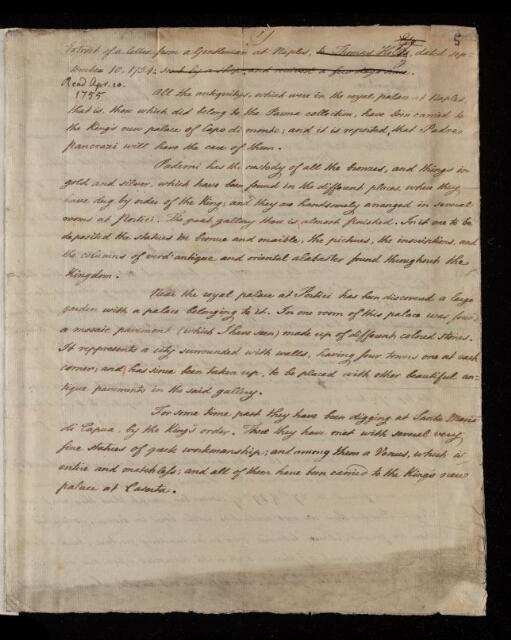 5
Extract of a letter from a Gentleman at Naples, to Thomas Hollis, Esq, dated Sep-
tember 10, 1754, sent by a ship, and received a few days since.
Read Apr. 10.
1755
All the antiquitys, which were in the royal palace at Naples,
that is, those which did belong to the Parma collection, have been carried to
the King's new palace of Capo di monte; and it is reported, that Padre
Pancrazi will have the care of them.
Paderni has the custody of all the bronzes, and things in
gold and silver, which have been found in the different places, where they
have dug by order of the King; and they are handsomely arranged in several
rooms at Portici. The great gallery there is almost finished. In it are to be
deposited the statues in bronze and marble, the pictures, the inscriptions, and
the columns of verd' antique and oriental alabaster found throughout the
Kingdom.
Near the royal palace at Portici has been discovered a large
garden with a palace belonging to it. In one room of this palace was found
a mosaic pavement (which I have seen) made up of different colored stones.
It represents a city surrounded with walls, having four towers one at each
corner; and has since been taken up, to be placed with other beautiful an-
tique pavements in the said gallery.
For some time past they have been digging at Santa Maria
di Capua by the King's order. There they have met with several very
fine statues of greek workmanship; and among them a Venus, which is
entire and matchless; and all of them have been carried to the King's new
palace at Caserta.